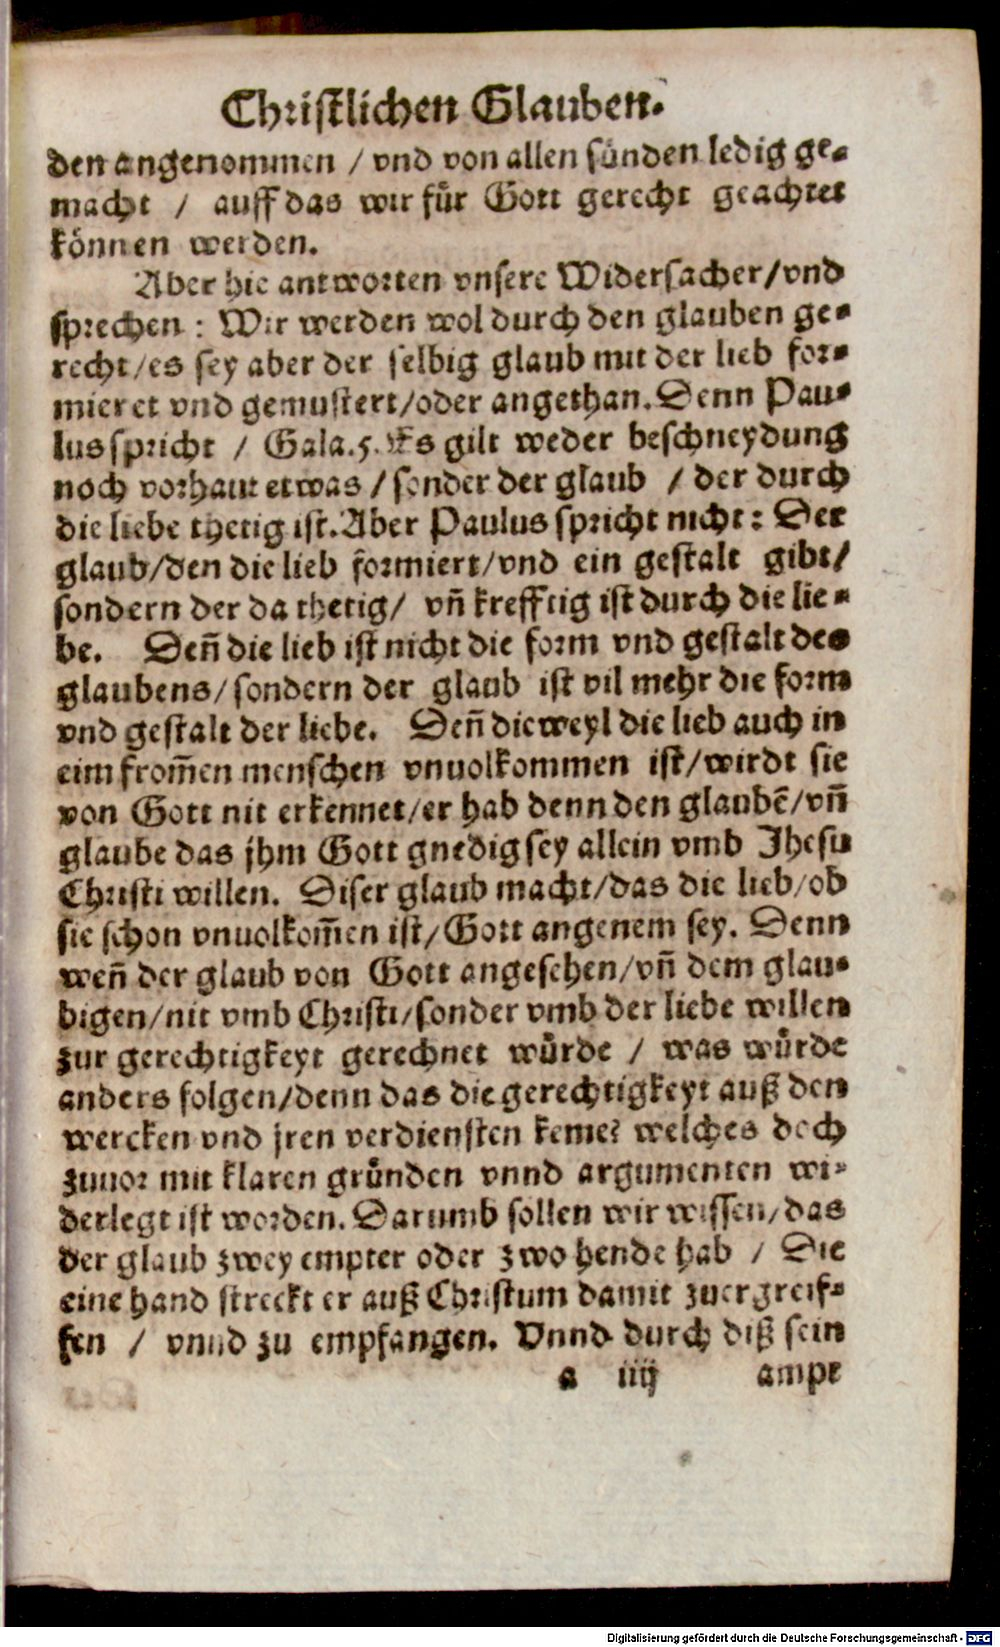 Christlichen Glauben.
den angenommen / vnd von allen sünden ledig ge-
macht / auff das wir für Gott gerecht geachtet
können werden.
Aber hie antworten vnsere Widersacher/vnd
sprechen : Wir werden wol durch den glauben ge-
recht/es sey aber der selbig glaub mit der lieb for-
mieret vnd gemustert/oder angethan. Denn Pau-
lus spricht / Gala.5. Es gilt weder beschneydung
noch vorhaut etwas / sonder der glaub / der durch
die liebe thetig ist. Aber Paulus spricht nicht: Der
glaub/den die lieb formiert/vnd ein gestalt gibt/
sondern der da thetig/ vñ krefftig ist durch die lie-
be. Deñ die lieb ist nicht die form vnd gestalt des
glaubens/sondern der glaub ist vil mehr die form
vnd gestalt der liebe. Deñ dieweyl die lieb auch in
eim from̃en menschen vnuolkommen ist/wirdt sie
von Gott nit erkennet/er hab denn den glaubẽ/vñ
glaube das jhm Gott gnedig sey allein vmb Jhesu
Christi willen. Diser glaub macht/das die lieb/ob
sie schon vnuolkom̃en ist/Gott angenem sey. Denn
weñ der glaub von Gott angesehen/vñ dem glau-
bigen/nit vmb Christi/sonder vmb der liebe willen
zur gerechtigkeyt gerechnet würde / was würde
anders folgen/denn das die gerechtigkeyt auß den
wercken vnd jren verdiensten keme? welches doch
zuuor mit klaren gründen vnnd argumenten wi-
derlegt ist worden. Darumb sollen wir wissen/das
der glaub zwey empter oder zwo hende hab / Die
eine hand streckt er auß Christum damit zuergreif-
fen / vnnd zu empfangen. Vnnd durch diß sein
a iiij ampt
Digitalisierung gefördert durch die Deutsche Forschungsgemeinschaft - DFG